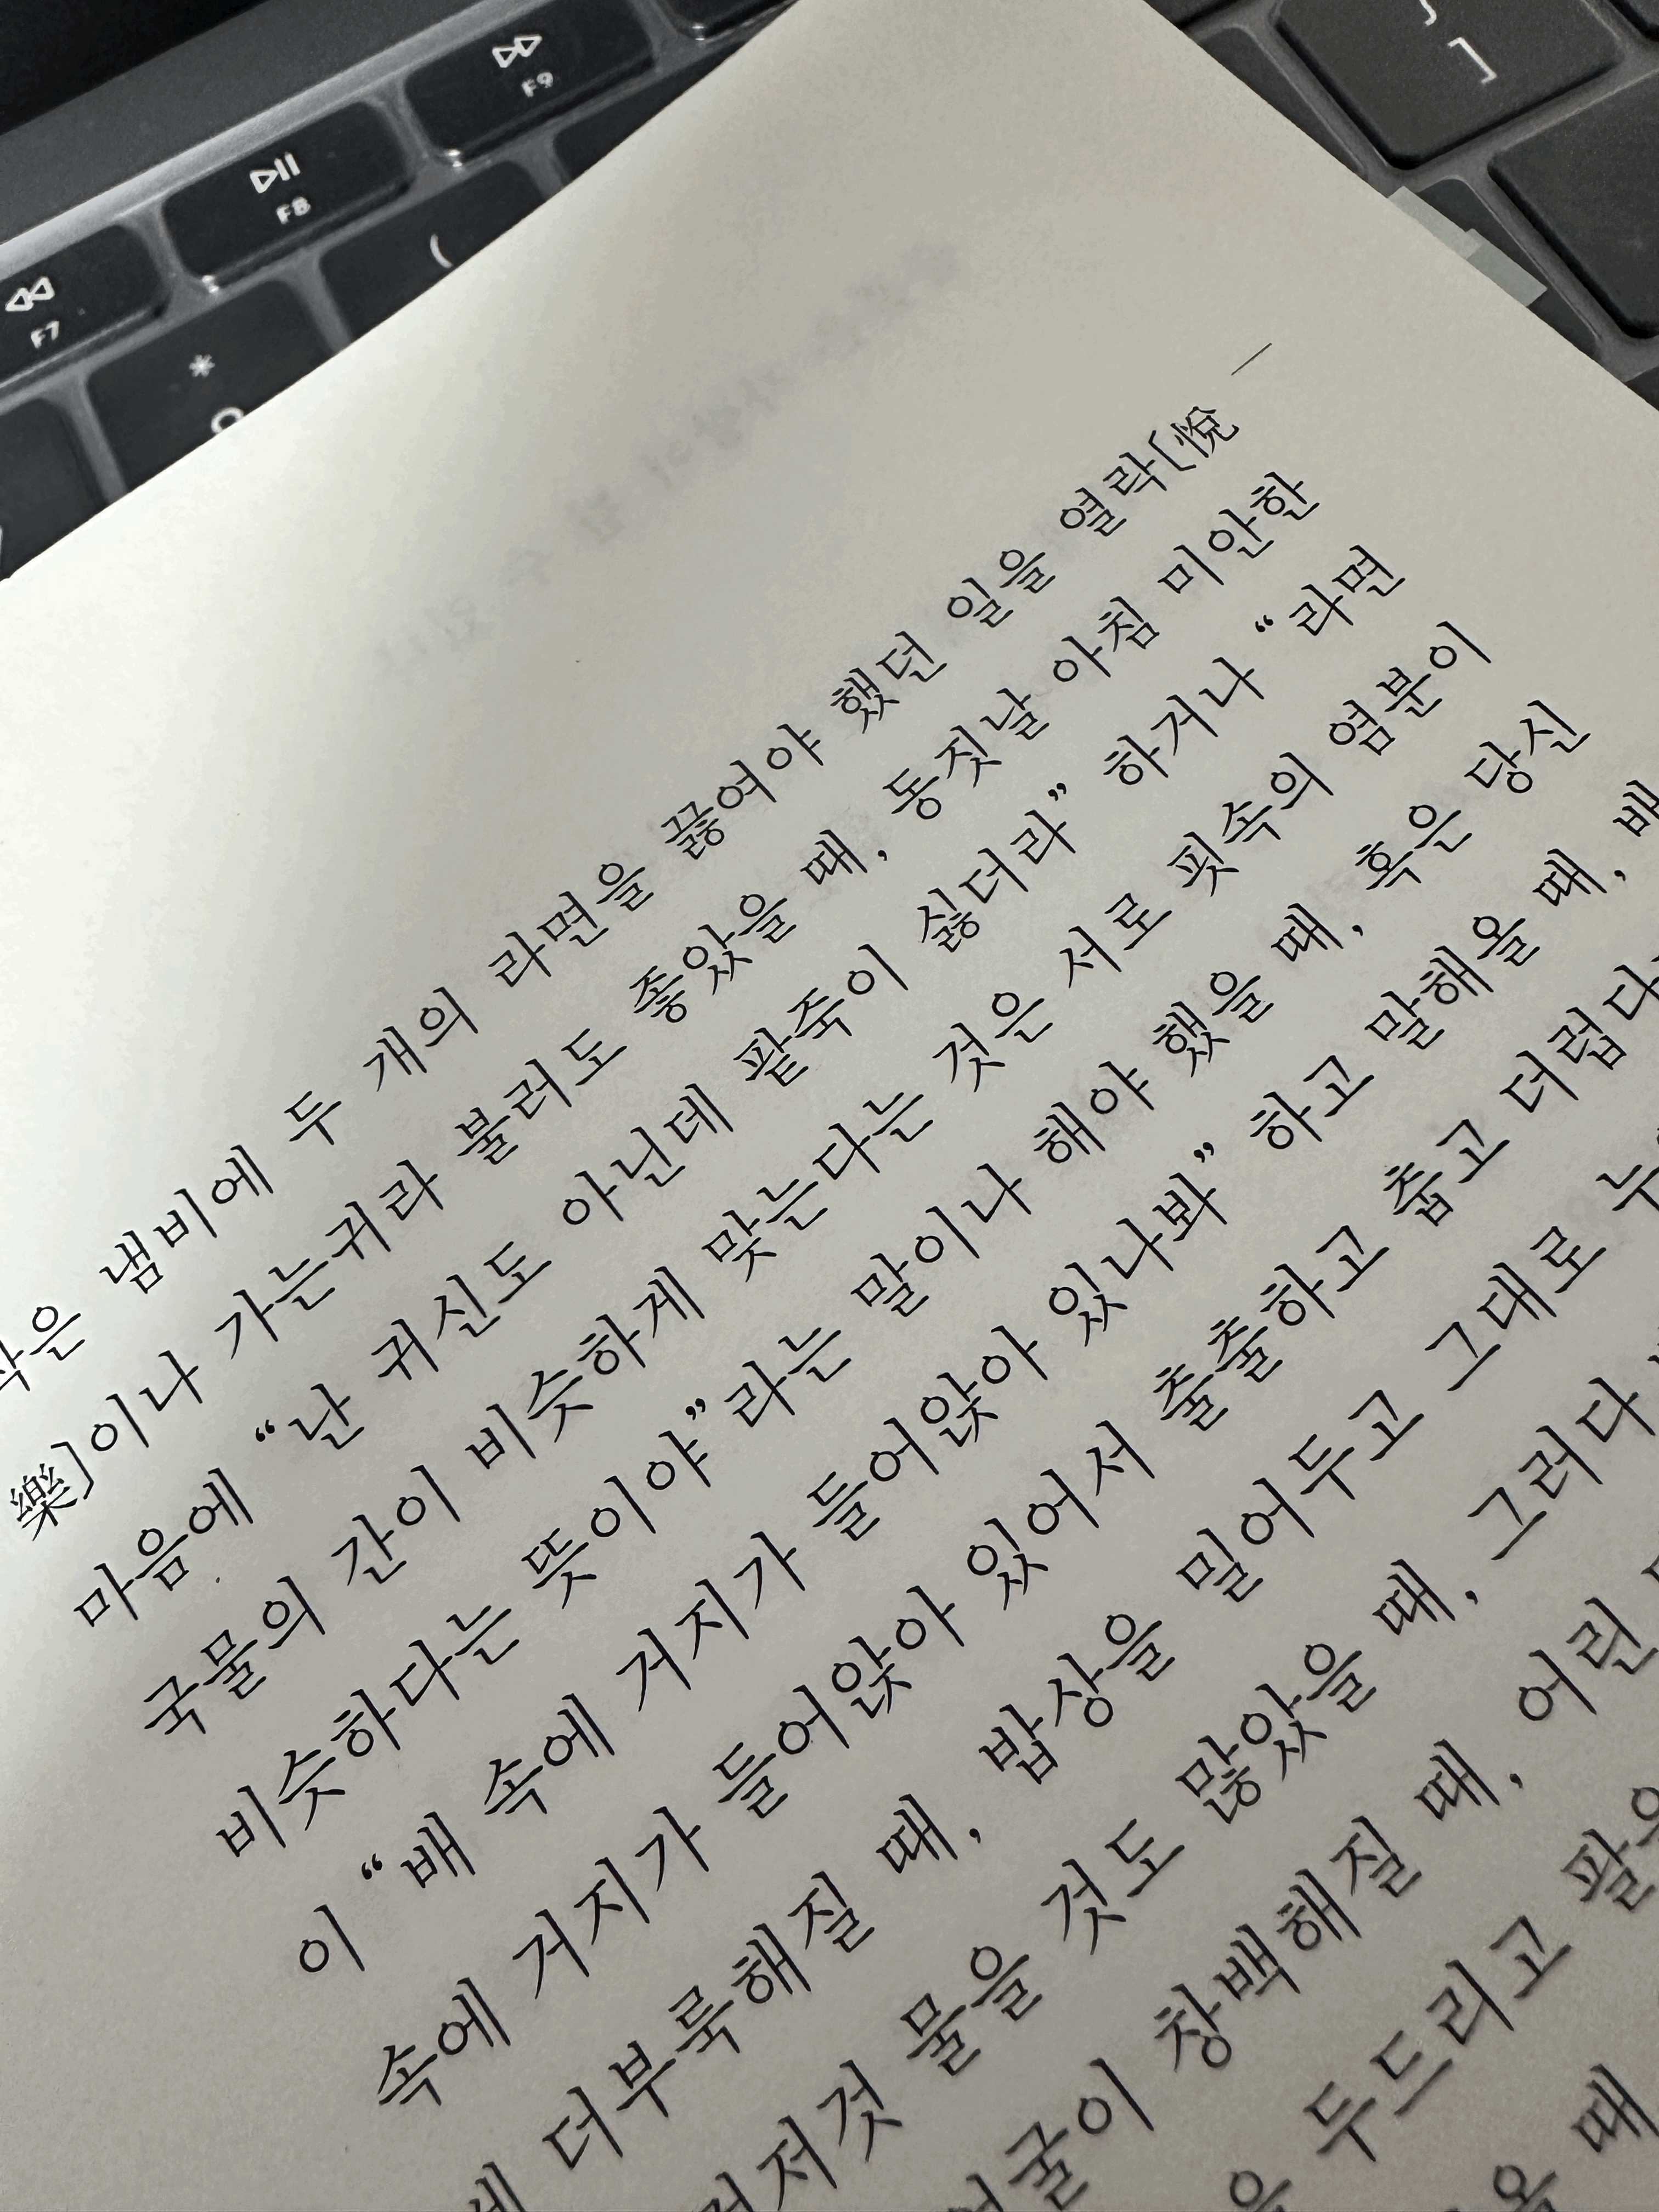 F7
F8
F9
*
(
]
작은 냄비에 두 개의 라면을 끓여야 했던 일을 열락[悅
樂]이나 가는귀라 불러도 좋았을 때, 동짓날 아침 미안한
마음에 “난 귀신도 아닌데 팥죽이 싫더라” 하거나 “라면
국물의 간이 비슷하게 맞는다는 것은 서로 핏속의 염분이
비슷하다는 뜻이야”라는 말이나 해야 했을 때, 혹은 당신
이 “배 속에 거지가 들어앉아 있나봐” 하고 말해올 때, 배
속에 거지가 들어앉아 있어서 출출하고 춥고 더럽다
더부룩해질 때, 밥상을 밀어두고 그대로
물을 것도 많았을 때, 그러다
창백해질 때, 어린
두드리고
때